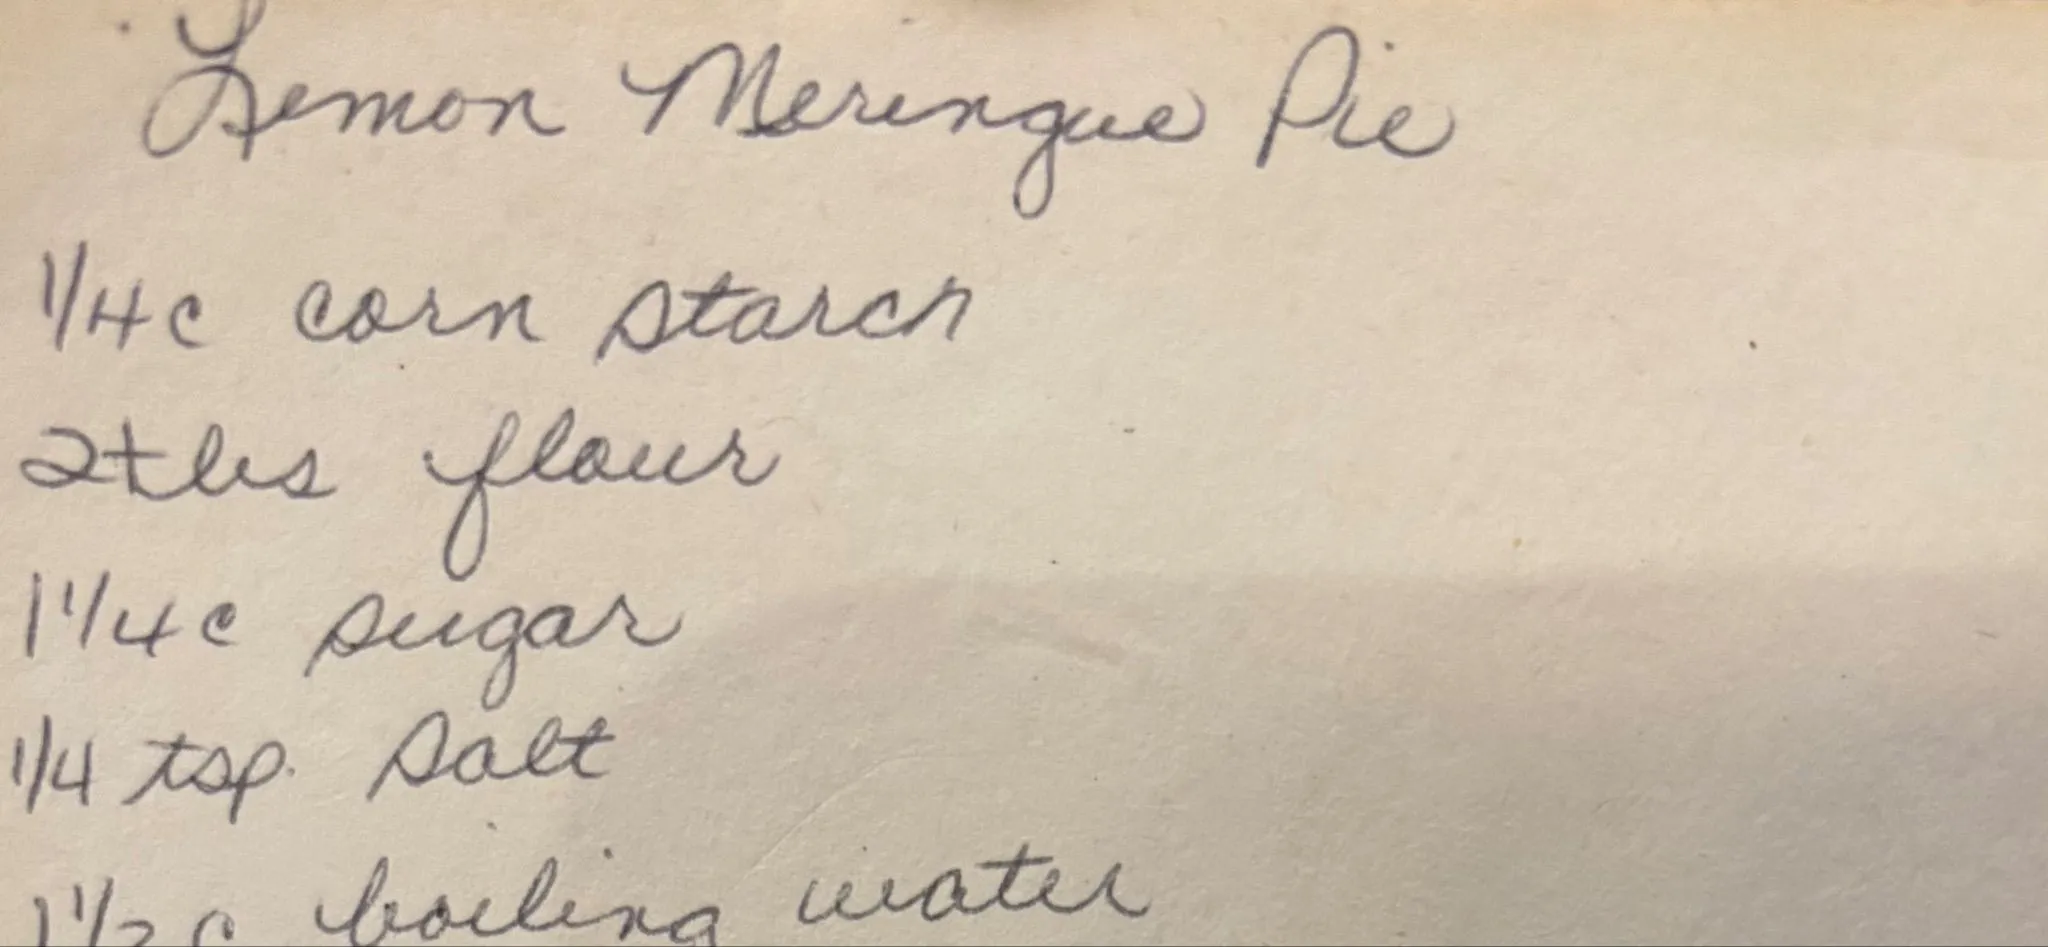 Lemon Meringue Pie
1/4 c corn starch
2 tbs flour
1 1/4 c sugar
1/4 tsp. salt
1 1/2 c boiling water